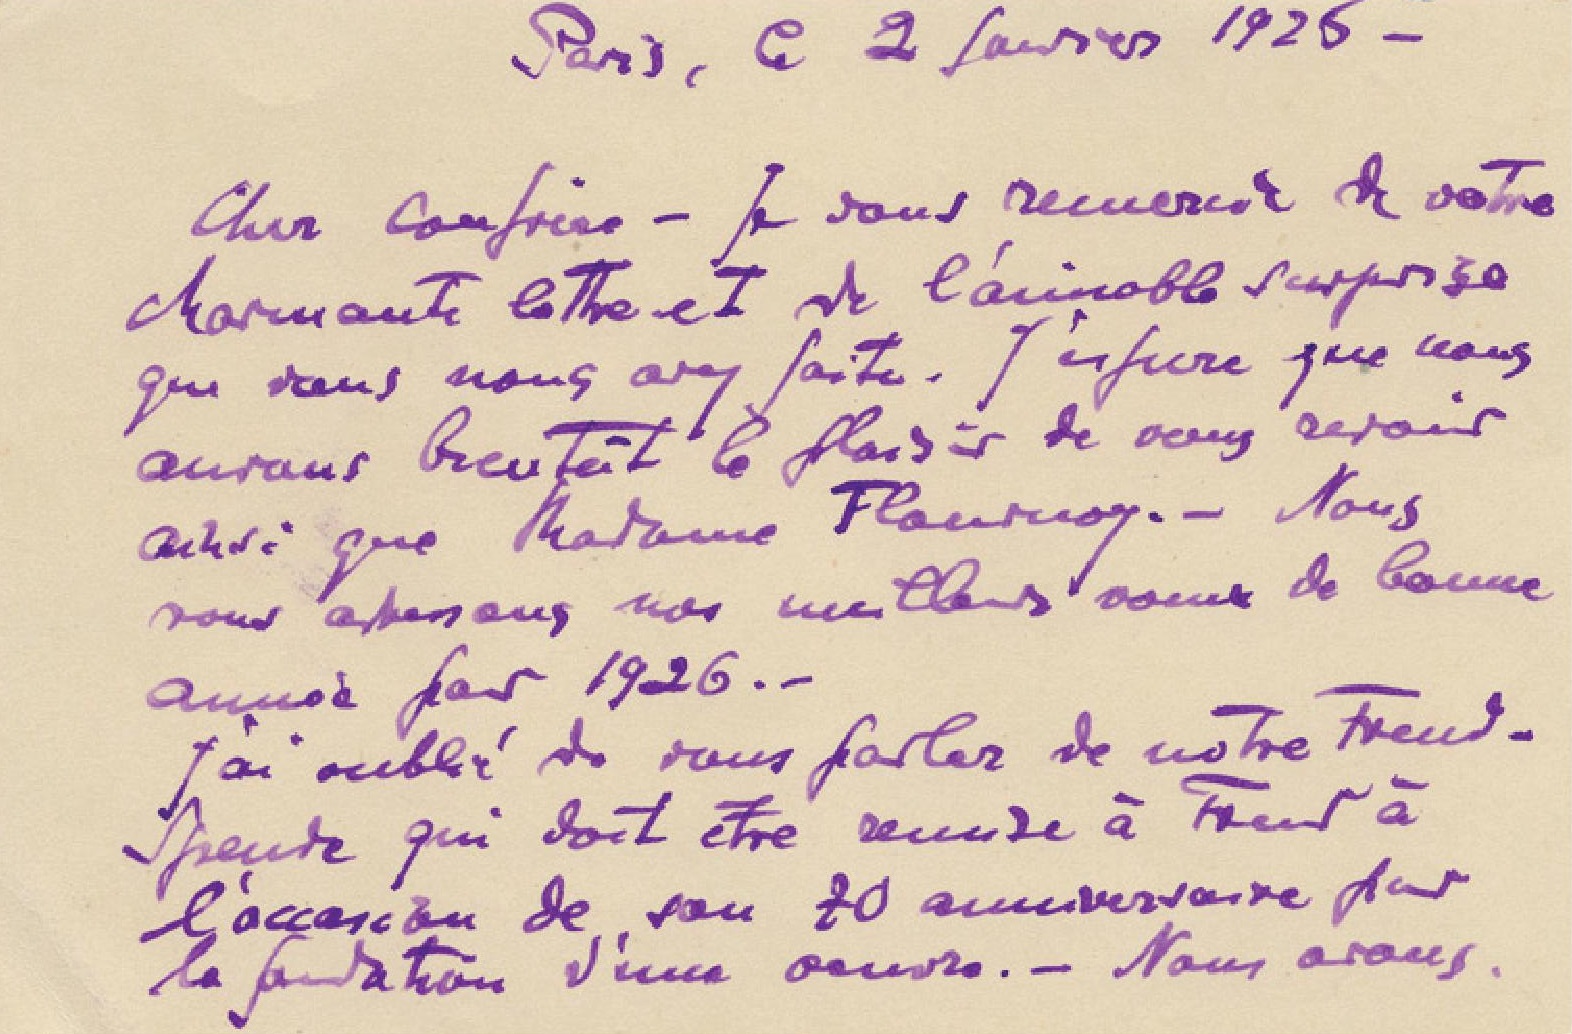 Paris, le 2 janvier 1926 -
Cher Confrère - Je vous remercie de votre
charmante lettre et de l'aimable surprise
que vous nous avez faite. J'espère que nous
aurons bientôt le plaisir de vous revoir
ainsi que Madame Flournoy. - Nous
vous adressons nos meilleurs voeux de bonne
année pour 1926. -
J'ai oublié de vous parler de notre Freud-
Spende qui doit être remise à Freud à
l'occasion de son 70 anniversaire pour
la fondation d'une oeuvre. - Nous avons.